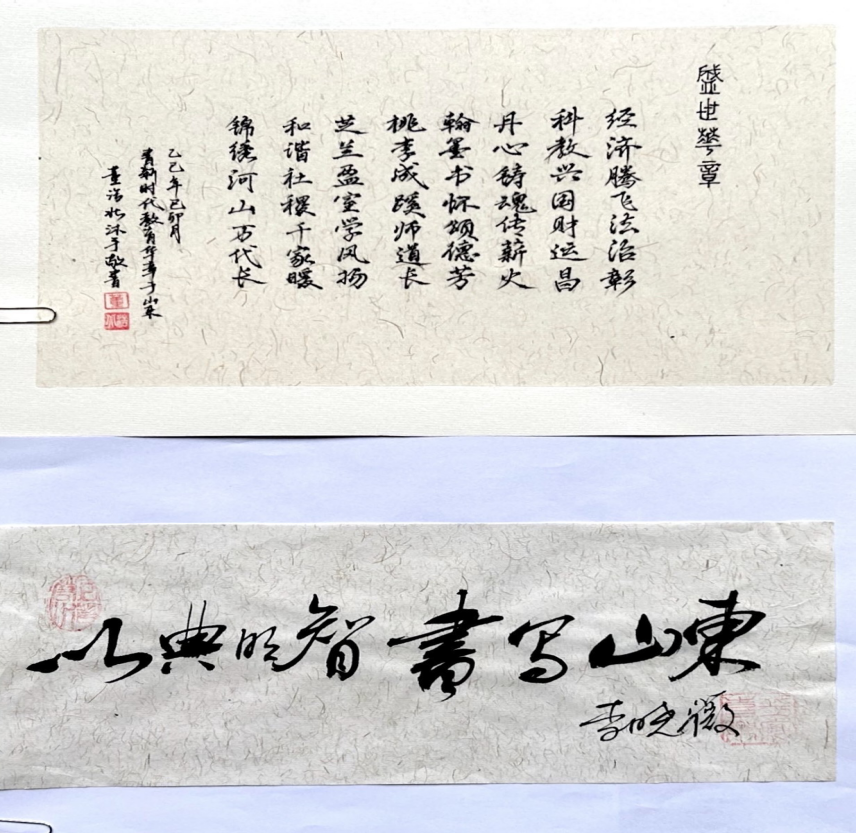 盛世华章
经济腾飞法治彰
科教兴国财运昌
丹心铸魂传薪火
翰墨书怀颂德芳
桃李成蹊师道长
芝兰盈室学风扬
和谐社稷千家暖
锦绣河山万代长
乙巳年己卯月
青新时代教育华章于山东
沐手敬書
以典明智書写山東
李晓微